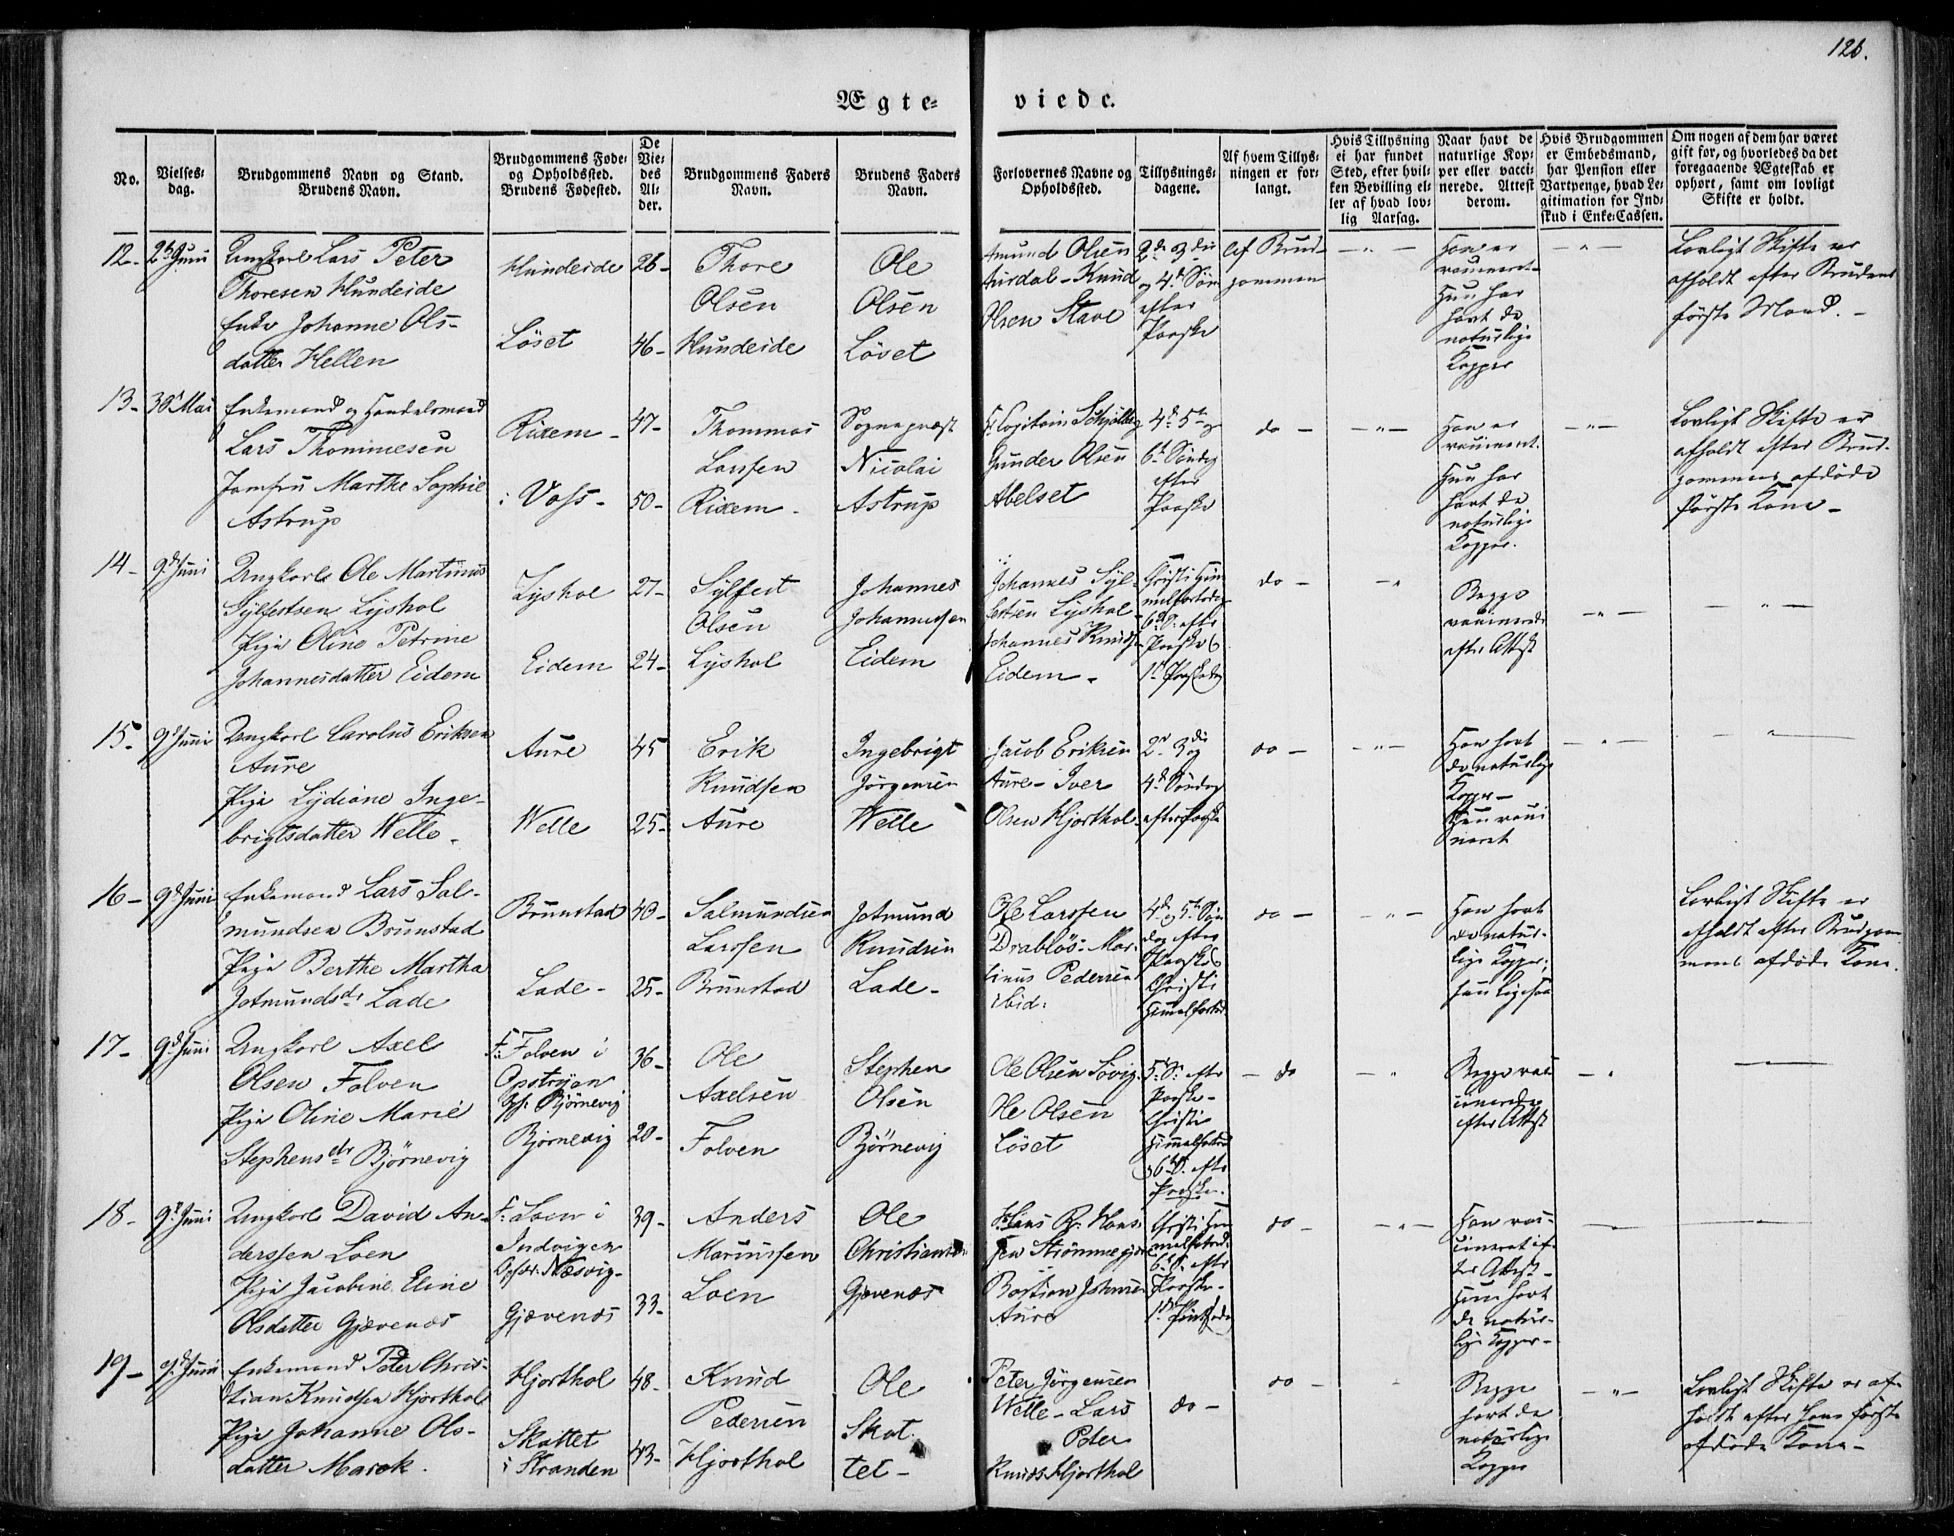 126.
Ægte- viede.
No.
Vielses-
dag.
Brudgommens Navn og Stand.
Brudens Navn.
Brudgommens Føde-
og Opholdssted.
Brudens Fødested.
De
Vie-
des
Al-
der.
Brudgommens Faders
Navn.
Brudens Faders
Navn.
Forlovernes Navne og
Opholdssted.
Tillysnings-
dagene.
Af hvem Tillys-
ningen er for-
langt.
Hvis Tillysning
ei har fundet
Sted, efter hvil-
ken Bevilling el-
ler af hvad lov-
lig Aarsag.
Naar havt de
naturlige Kop-
per eller vacci-
nerede. Attest
derom.
Hvis Brudgommen
er Embedsmand,
har Pension eller
Vartpenge, hvad Le-
gitimation for Ind-
skud i Enke-Cassen.
Om nogen af dem har været
gift før, og hvorledes da det
foregaaende Ægteskab er
ophørt, samt om lovligt
Skifte er holdt.
12- Juni
Ungkarl Lars Peter
Thoresen Hundeide
Enke Johanne Ols-
datter Hellen
Hundeide
Löset
26-
46-
Thore
Olsen
Hundeide
Ole
Olsen
Löset
Amund Olsen
Aursdal - Knud
Olsen Stave
2den 3die
og 4de Søn
efter
Paaske
Af Brud-
gommen
Han er
vaccineret-
Hun har
havt de
naturlige
Kopper
Lovligt Skifte er
afholdt efter Brudens
første Mand. -
13- Mai
Enkemand og Handelsmand
Lars Thommesen
Jomfru Marthe Sophie
Astrup
Rixem -
i Voss -
47-
50-
Thommas
Larssen
Rixem -
Sognepræst
Nicolai
Astrup
Gunder Olsen
Abelset
4de 5te og
6te Søndag
efter
Paaske
do -
Han er
vaccineret.
Hun har
havt de
naturlige
Kopper.
Lovligt Skifte er
afholdt efter Brud-
gommens afdöde
første Kone -
14- 9de Juni
Ungkarl Ole Martinus
Sylfestsen Lyshol
Pige Oline Petrine
Johannesdatter Eidem
Lyshol
Eidem
27-
24-
Sylfest
Olsen
Lyshol
Johannes
Johannessen
Eidem
Johannes Syl-
festsen Lyshol
Johannes Knuds-
Eidem -
Christi Him-
melfartsdag
6te S. efter
Paaske
do -
Begge
vaccinerede
efter Attest
15- 9de Juni
Ungkarl Carolus Eriksen
Aure
Pige Lydiane Inge-
brigtsdatter Welle -
Aure
Welle
45
25-
Erik
Knudsen
Aure
Ingebrigt
Jörgensen
Welle
Jacob Eriksen
Aure- Iver
Olsen Hjorthol-
2den 3die og
4de Søndag
efter Paaske
do -
Han havt
de naturlige
Kopper -
Hun vacci
neret
16- 9de Juni
Enkemand Lars Sal-
mundsen Brunstad
Pige Berthe Martha
Jotmundsdr Lade
Brunstad
Lade -
40-
25-
Salmundsen
Larssen
Brunstad
Jotmund
Knudsen
Lade -
Ole Larssen
Drablös - Mar-
tinus Pedersen
ibid:
4de og 5te Søn
dag efter
Paaske
Christi
Himmelfartsd
do -
Han havt
de natur-
lige Kopper;
hun ligesaa
Lovligt Skifte er
afholdt efter Brudgom
mens afdöde Kone.
17- 9de Juni
Ungkarl Axel
Olsen Folven
Pige Oline Marie
Stephensdr Björnevig
F: Folven i
Opstryen
Oph: Björnevig
Björnevig
36-
20-
Ole
Axelsen
Folven
Stephen
Olsen
Björnevig
Ole Olsen Søvig
Ole Olsen
Löset
5te S: efter
Paaske -
Christi
Himmelfartsd
6te S. efter
Paaske.
- do
Begge vac
cinerede
efter Attest
18- 9de Juni
Ungkarl David An-
derssen Loen
Pige Jacobine Eline
Olsdatter Gjævenæs
F: Loen i
Indvigen
Næsvig-
Gjævenæs
39-
33-
Anders
Mariussen
Loen
Ole
Christiansen
Gjævenæs
Hans Hans-
sen Strömmegjer
Bastian Johnsen
Aure
Christi Him
melfartsd.
6te S. efter
Paaske-
do -
Han vac-
cineret ef-
ter Attest -
Hun havt
de natur-
lige Kopper-
19- 9de Juni
Enkemand Peter Chris-
tian Knudsen Hjorthol
Pige Johanne Ols-
datter Marok.
Hjorthol
Skottet
i Stranden
48-
43-
Knud
Pedersen
Hjorthol
Ole
Skot-
tet -
Peter Jörgensen
Welle - Lars
Peter
Knuds. Hjorthol
do -
do -
Begge
havt de
naturlige
Kopper
Lovligt Skifte er af-
holdt efter hans første
afdöde Kone -